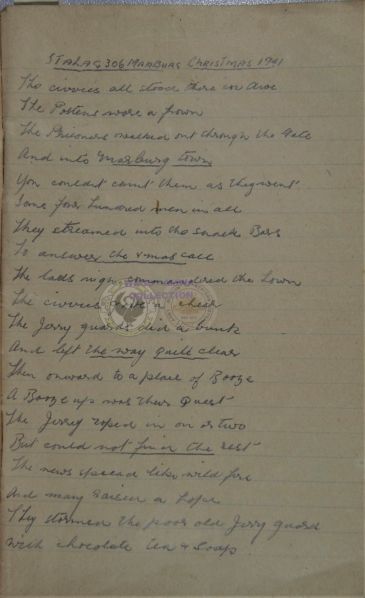 STALAG 306 MARBURG CHRISTMAS 1941
The civvies all stood there in awe
The Postens wore a frown
The Prisoners walked out through the Gate
And into Marburg town
You couldn't count them as they went
Some four hundred men in all
They streamed into the snack Bars
To answer the xmas call
The lads nigh commandered the town
The civvies a cheer
The Jerry guards did a bunk
And left the way quite clear
Then onward to a place of Booze
A Booze up was their Quest
The Jerry roped in on or two
But could not find the rest
The news spread like wild fire
And many a hope
They stormed the poor old Jerry guard
With chocolate tea & Soap
COLLECTION